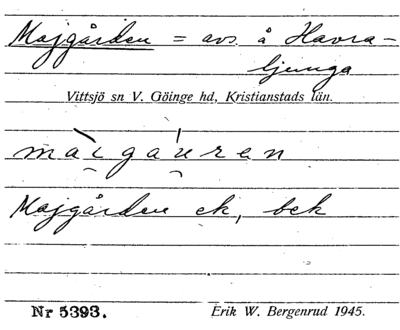 Majgården = avs. å Havra-
ljunga
Vittsjö sn V. Göinge hd, Kristianstads län.
mài̯gáu̯ren
Majgården ek, bek
Nr 5393. Erik W. Bergenrud 1945.